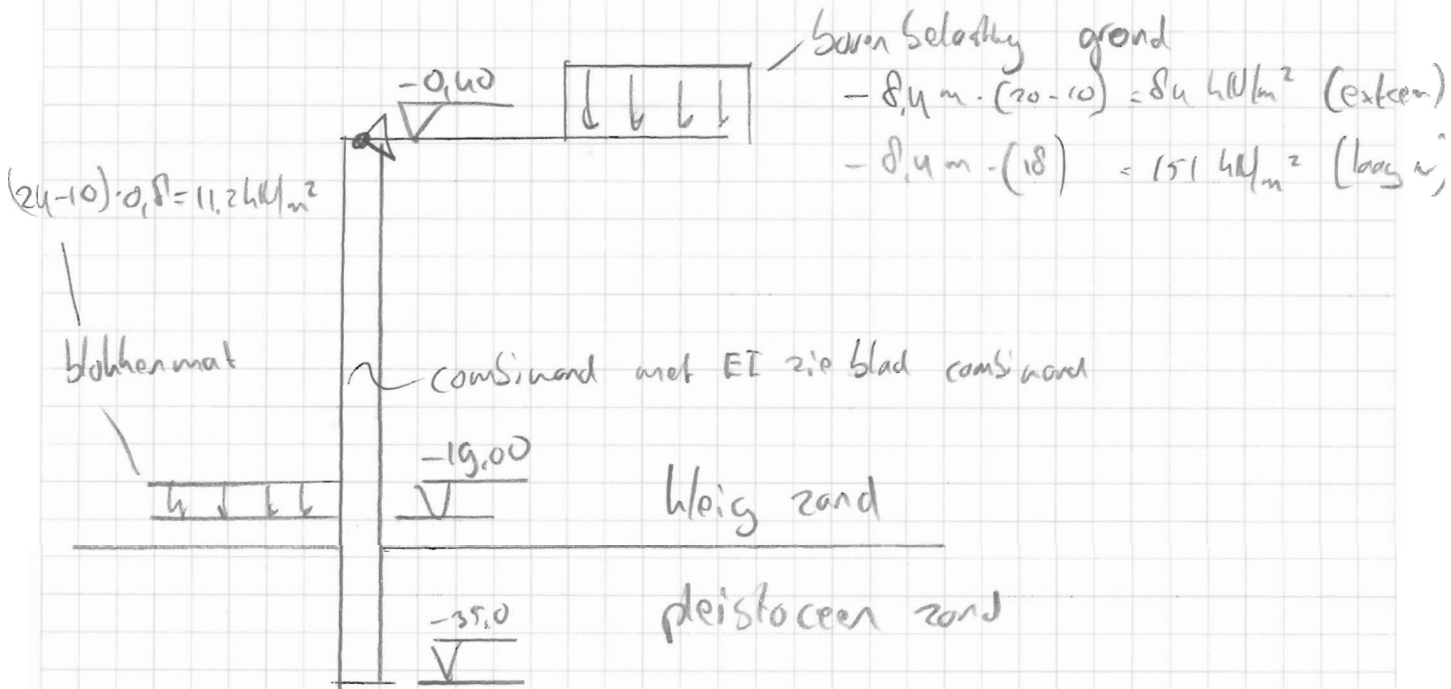 bovenbelasting grond
-0,40
- 8,4 m · (20-10) = 84 kN/m² (extreem)
- 8,4 m · (18) = 151 kN/m² (laag w
(24-10)·0,8=11,2kN/m²
blokkenmat
combiwand met EI zie blad combiwand
-19,00
kleiig zand
pleistoceen zand
-35,0